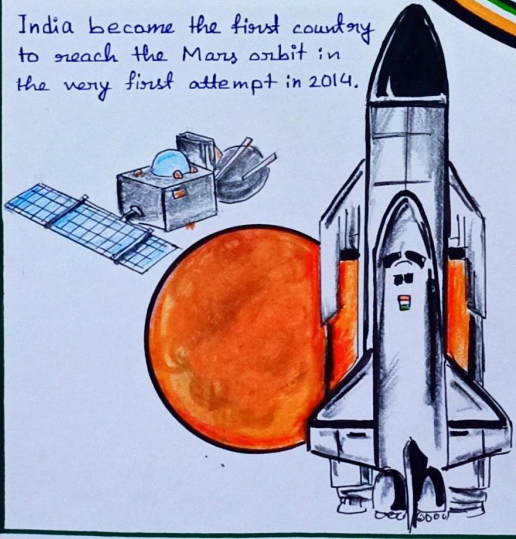 India became the first country
to reach the Mars orbit in
the very first attempt in 2014.